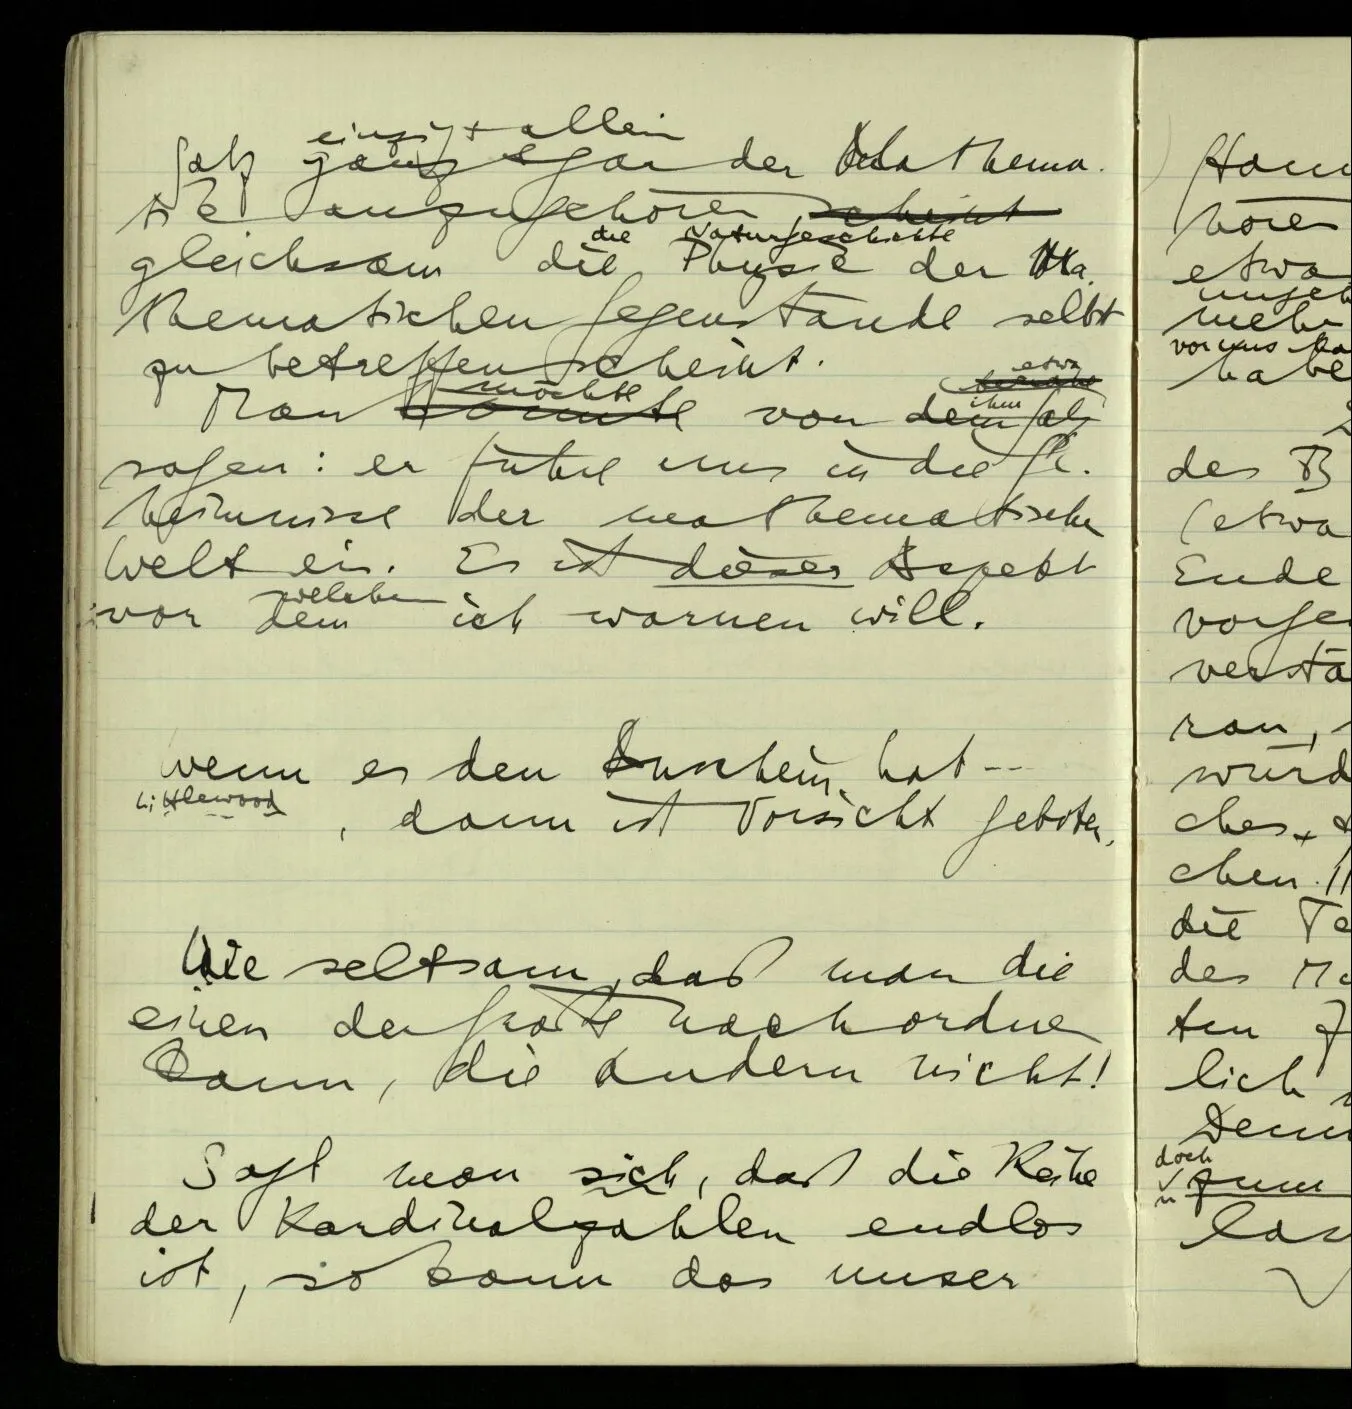 einzig + allein
Satz ganz & gar der Mathema-
tik anzugehören scheint
die Naturgeschichte
gleichsam die Physik der Ma-
thematischen Gegenstände selbst
zu betreffen scheint.
etwa
möchte
ihm
Man könnte von dem Satz
sagen: er führe uns in die Ge-
heimnisse der mathematischen
Welt ein. Es ist dieser Aspekt
welchem
vor dem ich warnen will.
wenn es den Anschein hat --
Littlewood
, dann ist Vorsicht geboten.
Wie seltsam, daß man die
einen der Größe nach ordnen
kann, die andern nicht!
Sagt man sich, daß die Reihe
der Kardinalzahlen endlos
ist, so kann das unser
hören
etwa
mehr
vor uns
habe
des B
(etwa
Ende
vorge
verstä
ran,
würd
ches +
chen
die Te
des
ten
lich
Denn
doch
zum